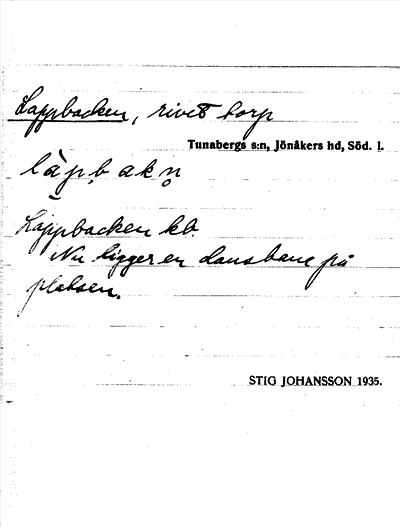 Lappbacken, rivet torp
Tunabergs s:n, Jönåkers hd, Söd. l.
làp̬b̥akn̥
Lappbacken kb.
Nu ligger en dansbane på
platsen.
STIG JOHANSSON 1935.